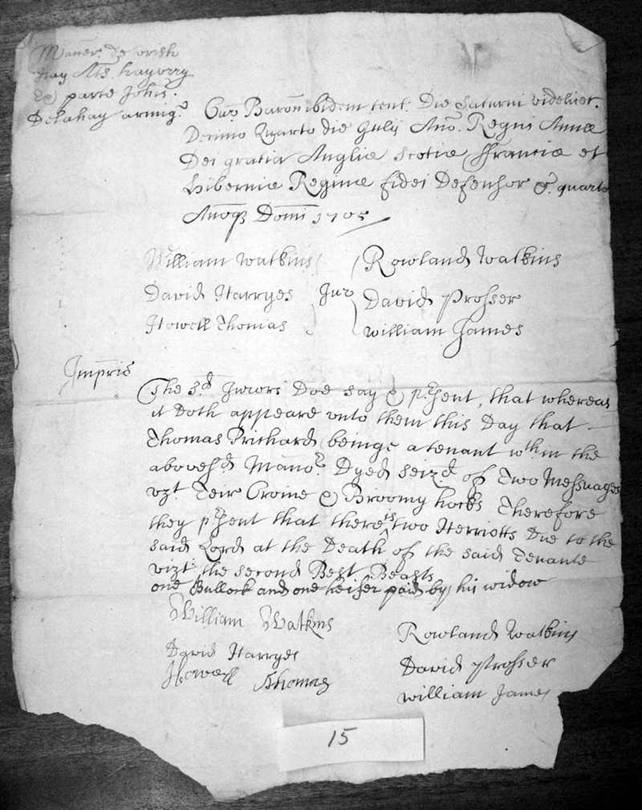 Maner de Crish
hay Als hayorry
Ex parte Johis
Delahay armigr
Cur Baron ibidem tent Die Saturni videlicet.
Decimo Quarto die Julij Ano. Regni Annæ
Dei gratia Angliæ Scotiæ ffranciæ et
Hiberniæ Reginæ fidei Defensor &c. quarto
Anoqz Domi 1705
William Watkins
David Harryes
Howell Thomas
Jur
Rowland Watkins
David Prosser
William James
Impris
The sd Jurors Doe say & pʳsent, that whereas
it doth appeare unto them this Day that
Thomas Prichard beinge a tenant wthin the
abovesd Manor Dyed seizd of Two Messuages
vzt Teir Crome & Broomy hocks Therefore
they pʳsent that there is two Herriotts Due to the
said Lord at the Death of the said Tenante
vizt the second Best Beasts
one Bullock and one heifer paid by his widow
William Watkins
David Harryes
Howell Thomas
Rowland Watkins
David Prosser
William James
15